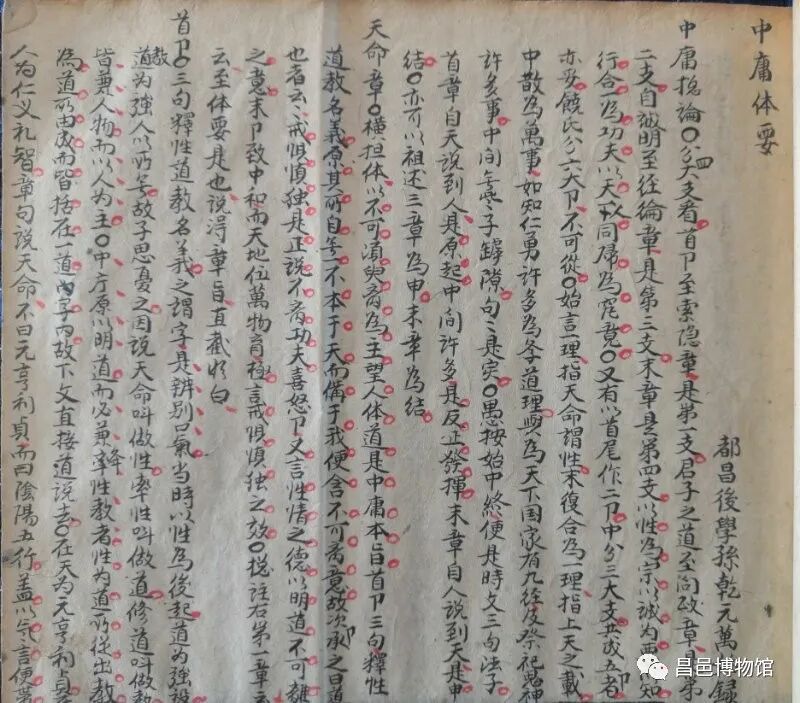 中庸体要
都昌後學孫乾元萬錄
中庸捴論〇分四大支看首卩至索隐章是第一支君子之道至问政章是第
二支自诚明至经纶章是第三支末章是第四支以性為宗以诚为要以知
行合為功夫以天人同歸為究竟〇又有以首尾作二卩中分三大支共成五者
亦妥饒氏分六大卩不可從〇始言一理指天命謂性末復合為一理指上天之載
中散為萬事如知仁勇許多為学道理與為天下国家有九经及祭祀鬼神
許多事中间無些子罅隙句〻是实〇愚按始中终便是時文三句法子
首章自天说到人是原起中间許多是反正發揮末章自人说到天是申
结〇亦可以祖述三章為申末章為结
天命章〇横担体以不可須臾离為主望人体道是中庸本旨首卩三句釋性
道教名義原其所自无不本于天而備于我便含不可离意故次承之曰道
也者云〻戒惧慎独是正说不离功夫喜怒卩又言性情之德以明道不可離
之意末卩致中和而天地位萬物育極言戒惧慎独之效〇捴註右第一章云
云至体要是也说得章旨直截明白
首卩〇三句釋性道教名義之謂字是辨别口氣當時以性為後起道为強設
教为強人以所无故子思憂之因说天命叫做性率性叫做道修道叫做教
皆兼人物而以人为主〇中庸原以明道而必兼性教者性为道所從出教
為道所由成而皆括在一道字内故下文直接道说去〇在天为元亨利貞在
人为仁义礼智章句说天命不曰元亨利貞而曰陰陽五行盖以氣言便兼
昌邑博物馆